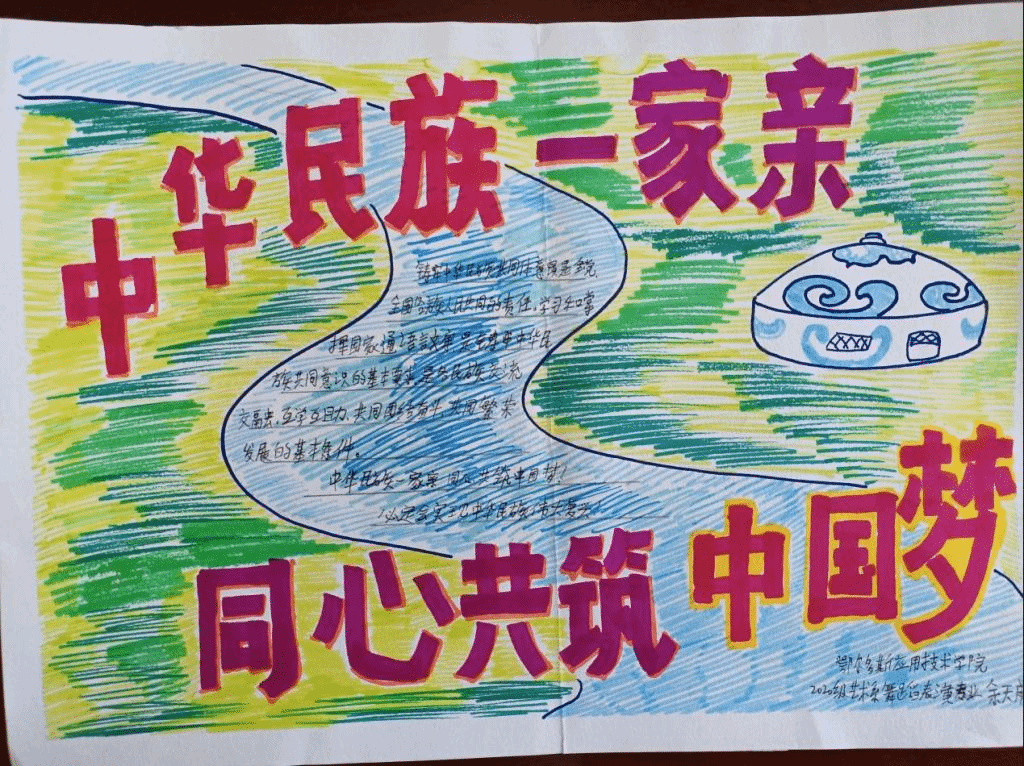 中华民族一家亲
铸牢中华民族共同体意识是全党
全国各族人民共同的责任，学习和掌
握国家通用语言文字是铸牢中华民
族共同意识的基本要求是各民族交流
交融，互学互助，共同团结奋斗 共同繁荣
发展的基本条件。
中华民族一家亲 同心共筑中国梦！
必定会实现中华民族伟大复兴！
同心共筑
中国梦
鄂尔多斯应用技术学院
2020级艺术系舞蹈表演专业 余天